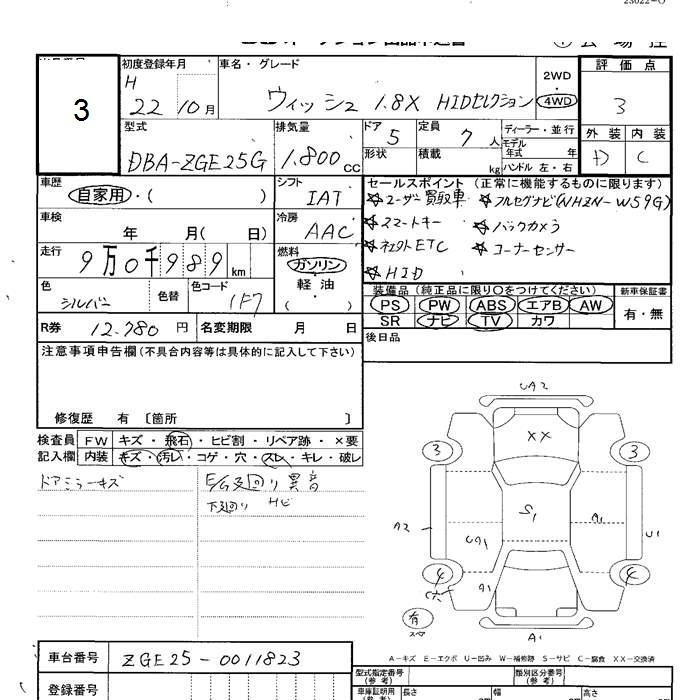 23022-0
3
初度登録年月
H
22 10月
車名・グレード
ウィッシュ 1.8X HIDセレクション
2WD
・
4WD
評価点
3
外装 内装
D C
型式
DBA-ZGE25G
排気量
1.800cc
ドア 5
定員 7人
形状
積載 kg
ディーラー・並行
モデル年式 年
ハンドル 左・右
車歴
自家用・( )
シフト
IAT
車検
年 月( 日)
冷房
AAC
走行
9万0千989km
燃料
ガソリン・
軽油・
( )
色
シルバー
色替
色コード
1F7
R券 12.780円
名変期限 月 日
セールスポイント(正常に機能するものに限ります)
☆ユーザー買取車 ☆フルセグナビ(NHZN-W59G)
☆スマートキー ☆バックカメラ
☆ETC ☆コーナーセンサー
☆HID
装備品(純正品に限り○をつけてください)
PS PW ABS エアB AW
SR ナビ TV カワ
新車保証書
有・無
後日品
注意事項申告欄(不具合内容等は具体的に記入して下さい)
修復歴 有 〔箇所 〕
検査員 FW キズ・飛石・ヒビ割・リペア跡・×要
記入欄 内装 キズ・汚レ・コゲ・穴・スレ・キレ・破レ
ドアミラーキズ
E/G廻り異音
下廻り サビ
UA2
XX
3 3
S1
A2 UA1 A1 U1
4 4
A1
有
スペア
A1
A-キズ E-エクボ U-凹み W-補修跡 S-サビ C-腐食 XX-交換済
車台番号 ZGE25-0011823
登録番号
型式指定番号(参考)
類別区分番号(参考)
車庫証明用(参考) 長さ 幅 高さ